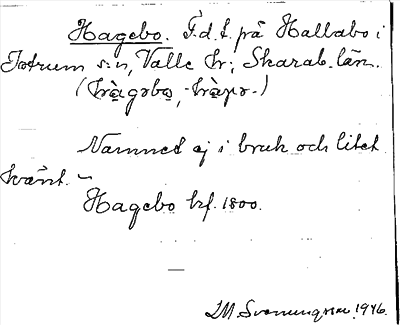 Hagebo. F.d.t. på Hallabo i
Istrum s:n, Valle hr; Skarab. län.
Namnet ej i bruk och litet
känt. –
Hagebo krf. 1800.
1946.